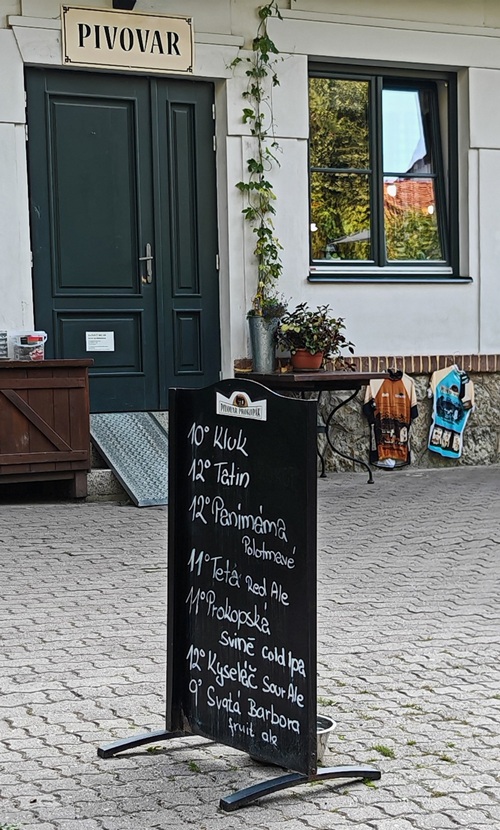 PIVOVAR
PIVOVAR PROKOPÁK
10° Kluk
12° Tatin
12° Panimáma
Polotmavé
11° Tetá Red Ale
11° Prokopská
svině cold Ipa
12° Kyseláč Sour Ale
9° Svatá Barbora
fruit ale